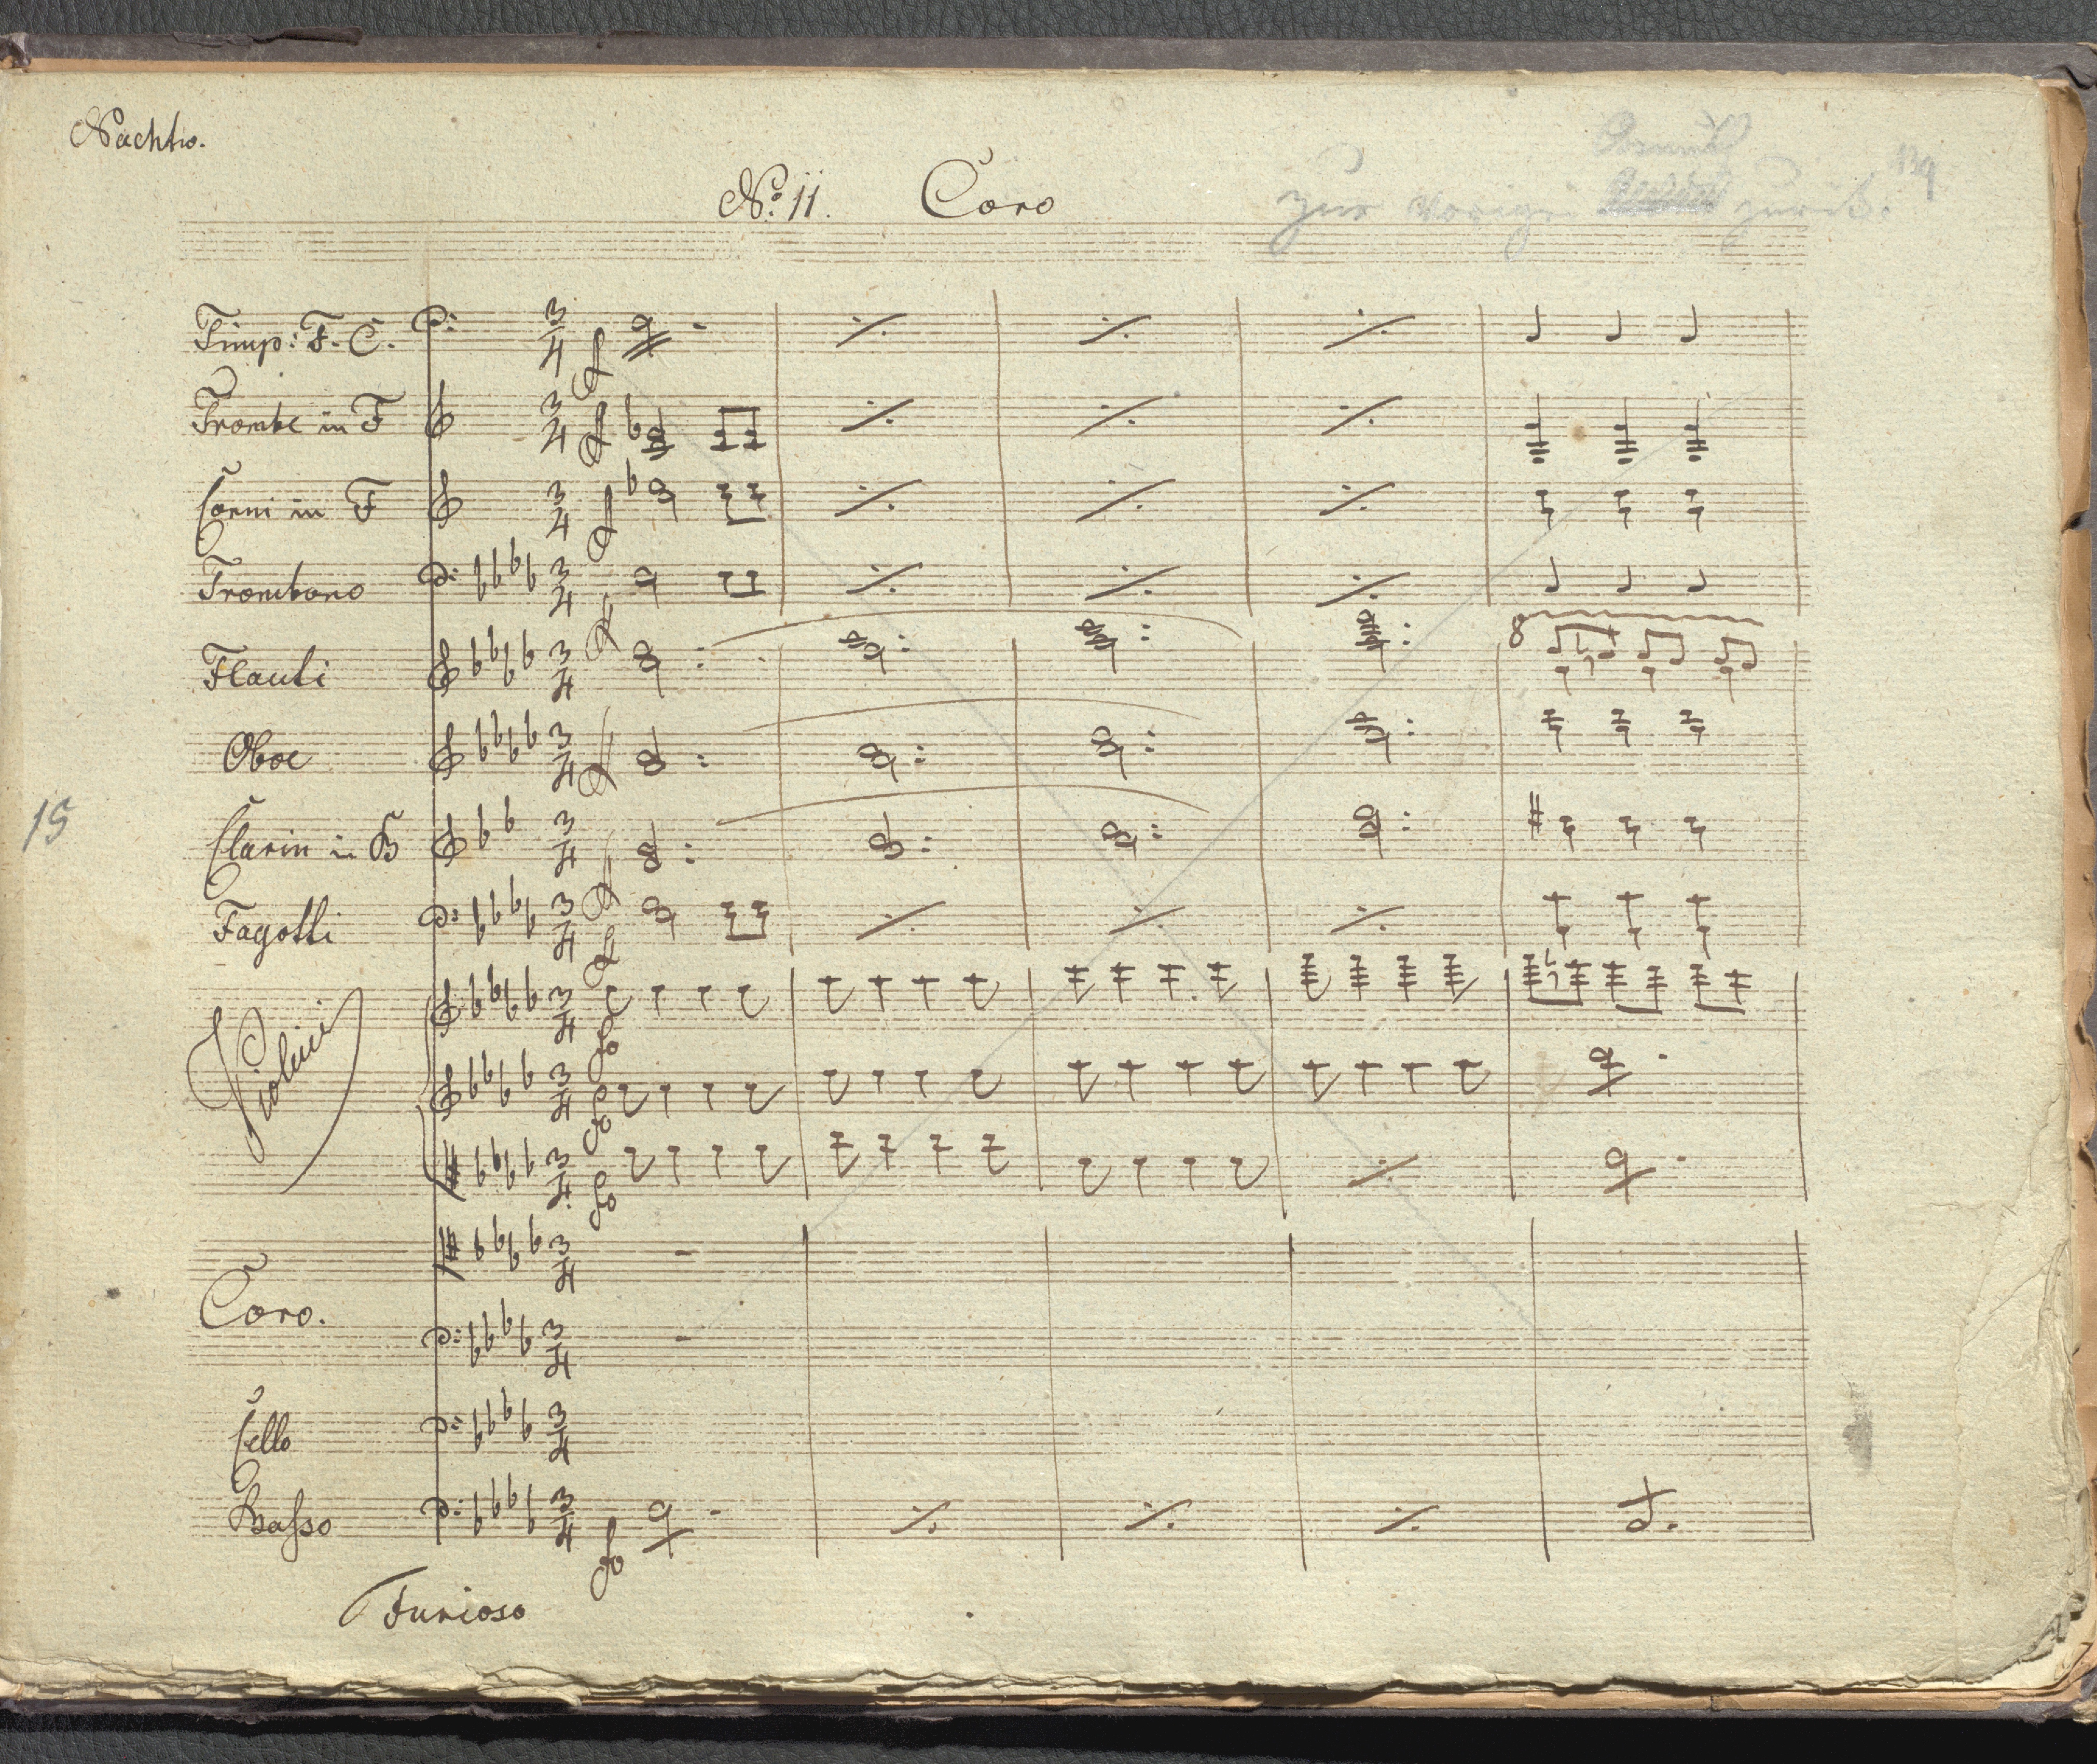 Nachtw.
No. 11. Coro
zur vorigen zurück.
Timp: F. C.
Trombe in F
Corni in F
Trombono
Flauti
8
Oboe
15
Clarin in B
Fagotti
Violini
Coro.
Cello
Basso
Furioso